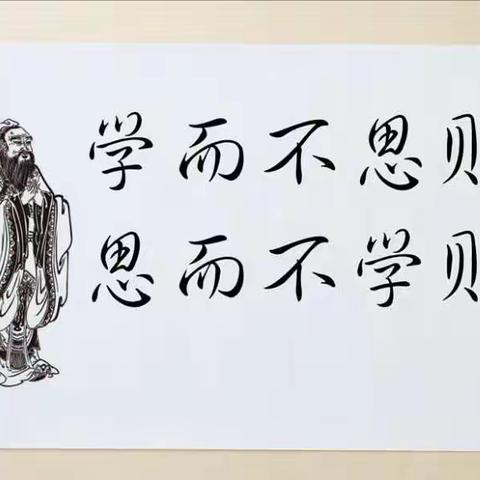 学而不思
思而不学